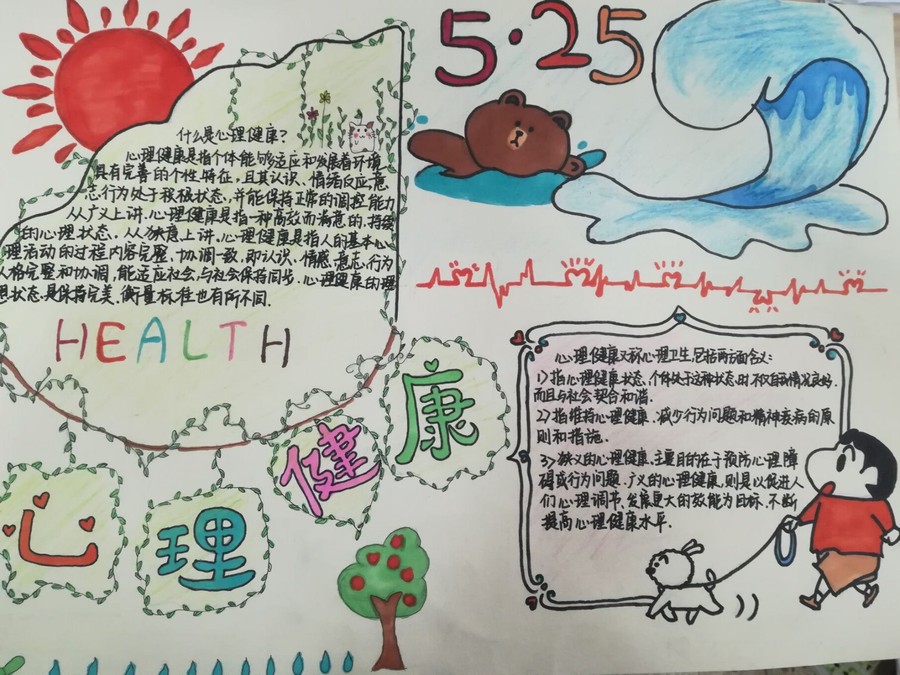 5·25
什么是心理健康?
心理健康是指个体能够适应和发展着环境,
具有完善的个性特征,且其认识、情绪反应,意
志行为处于积极状态,并能保持正常的调控能力
从广义上讲,心理健康是指一种高效而满意的,持续
的心理状态,从狭意上讲,心理健康是指人的基本心
理活动的过程内容完整、协调一致,即认识、情感、意志,行为
人格完整和协调,能适应社会,与社会保持同步,心理健康的理
想状态,是保持完美,衡量标准也有所不同.
HEALTH
心理健康
心理健康又称心理卫生,包括两方面含义:
1>指心理健康状态,个体处于这种状态,时不仅自我情况良好,
而且与社会契合和谐.
2>指维持心理健康、减少行为问题和精神疾病的原
则和措施.
3>狭义的心理健康,主要目的在于预防心理障
碍或行为问题,广义的心理健康,则是以促进人
们心理调节、发展更大的效能为目标,不断
提高心理健康水平.